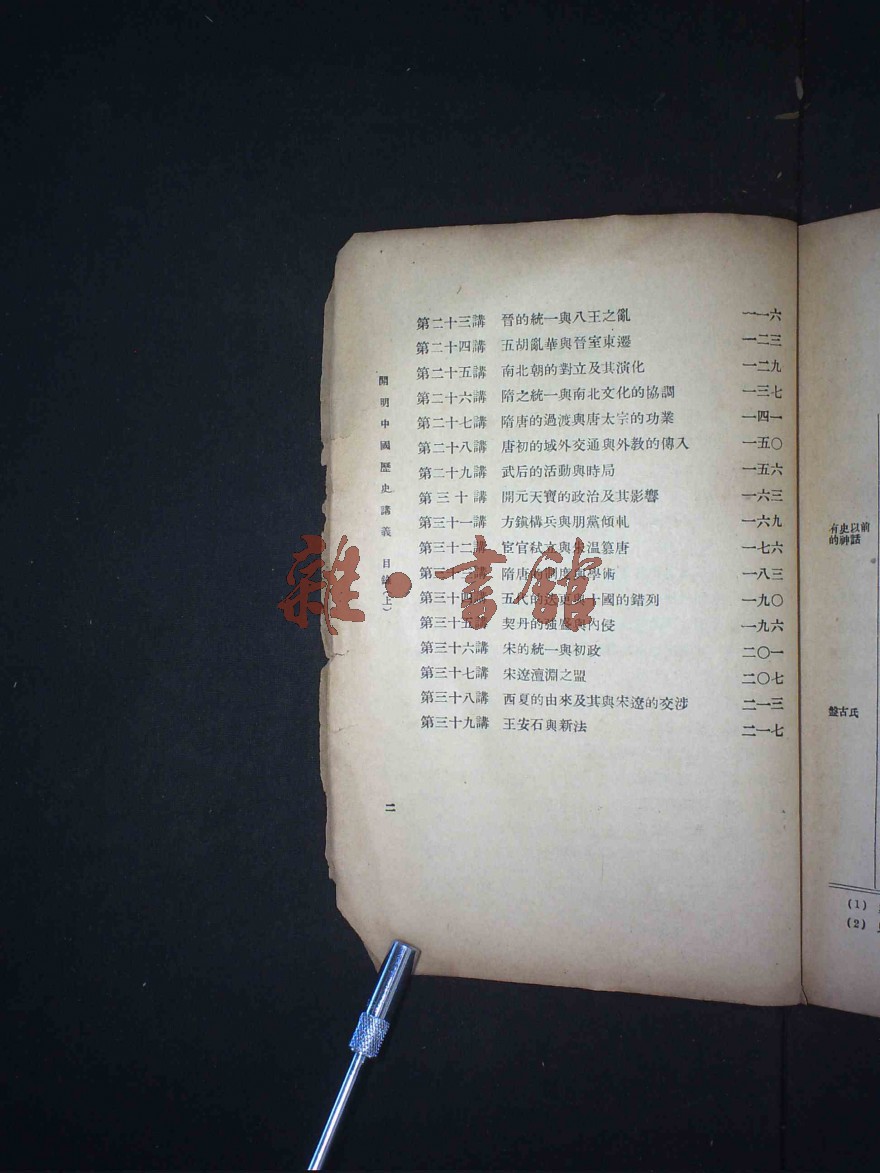 第二十三講 晉的統一與八王之亂 一一六
第二十四講 五胡亂華與晉室東遷 一二三
第二十五講 南北朝的對立及其演化 一二九
第二十六講 隋之統一與南北文化的協調 一三七
第二十七講 隋唐的過渡與唐太宗的功業 一四一
第二十八講 唐初的域外交通與外教的傳入 一五〇
第二十九講 武后的活動與時局 一五六
第三十講 開元天寶的政治及其影響 一六三
第三十一講 方鎮構兵與朋黨傾軋 一六九
第三十二講 宦官弒立與朱溫篡唐 一七六
第三十三講 隋唐的制度與學術 一八三
第三十四講 五代的迭更與十國的錯列 一九〇
第三十五講 契丹的強盛與內侵 一九六
第三十六講 宋的統一與初政 二〇一
第三十七講 宋遼澶淵之盟 二〇七
第三十八講 西夏的由來及其與宋遼的交涉 二一三
第三十九講 王安石與新法 二一七
開明中國歷史講義 目錄(上)
二
雜·書館
有史以前
的神話
盤古氏
(1)
(2)